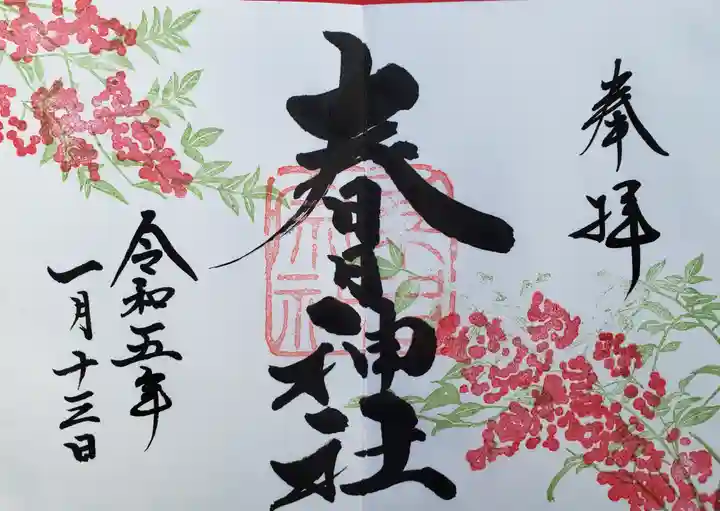 奉拝
春日神社
令和五年
一月十三日